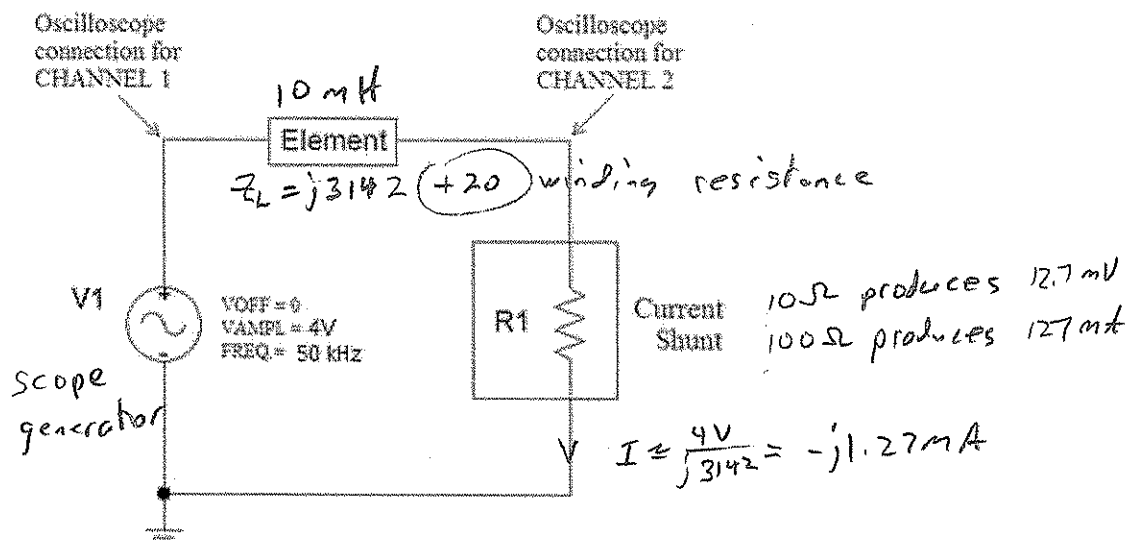 Oscilloscope
connection for
CHANNEL 1
Oscilloscope
connection for
CHANNEL 2
10 mH
Element
Z_L = j3142 +20 winding resistance
V1
VOFF = 0
VAMPL = 4V
FREQ = 50 kHz
scope
generator
R1
Current
Shunt
10Ω produces 12.7 mV
100Ω produces 127 mA
I ≈ 4V / j3142 = -j1.27mA